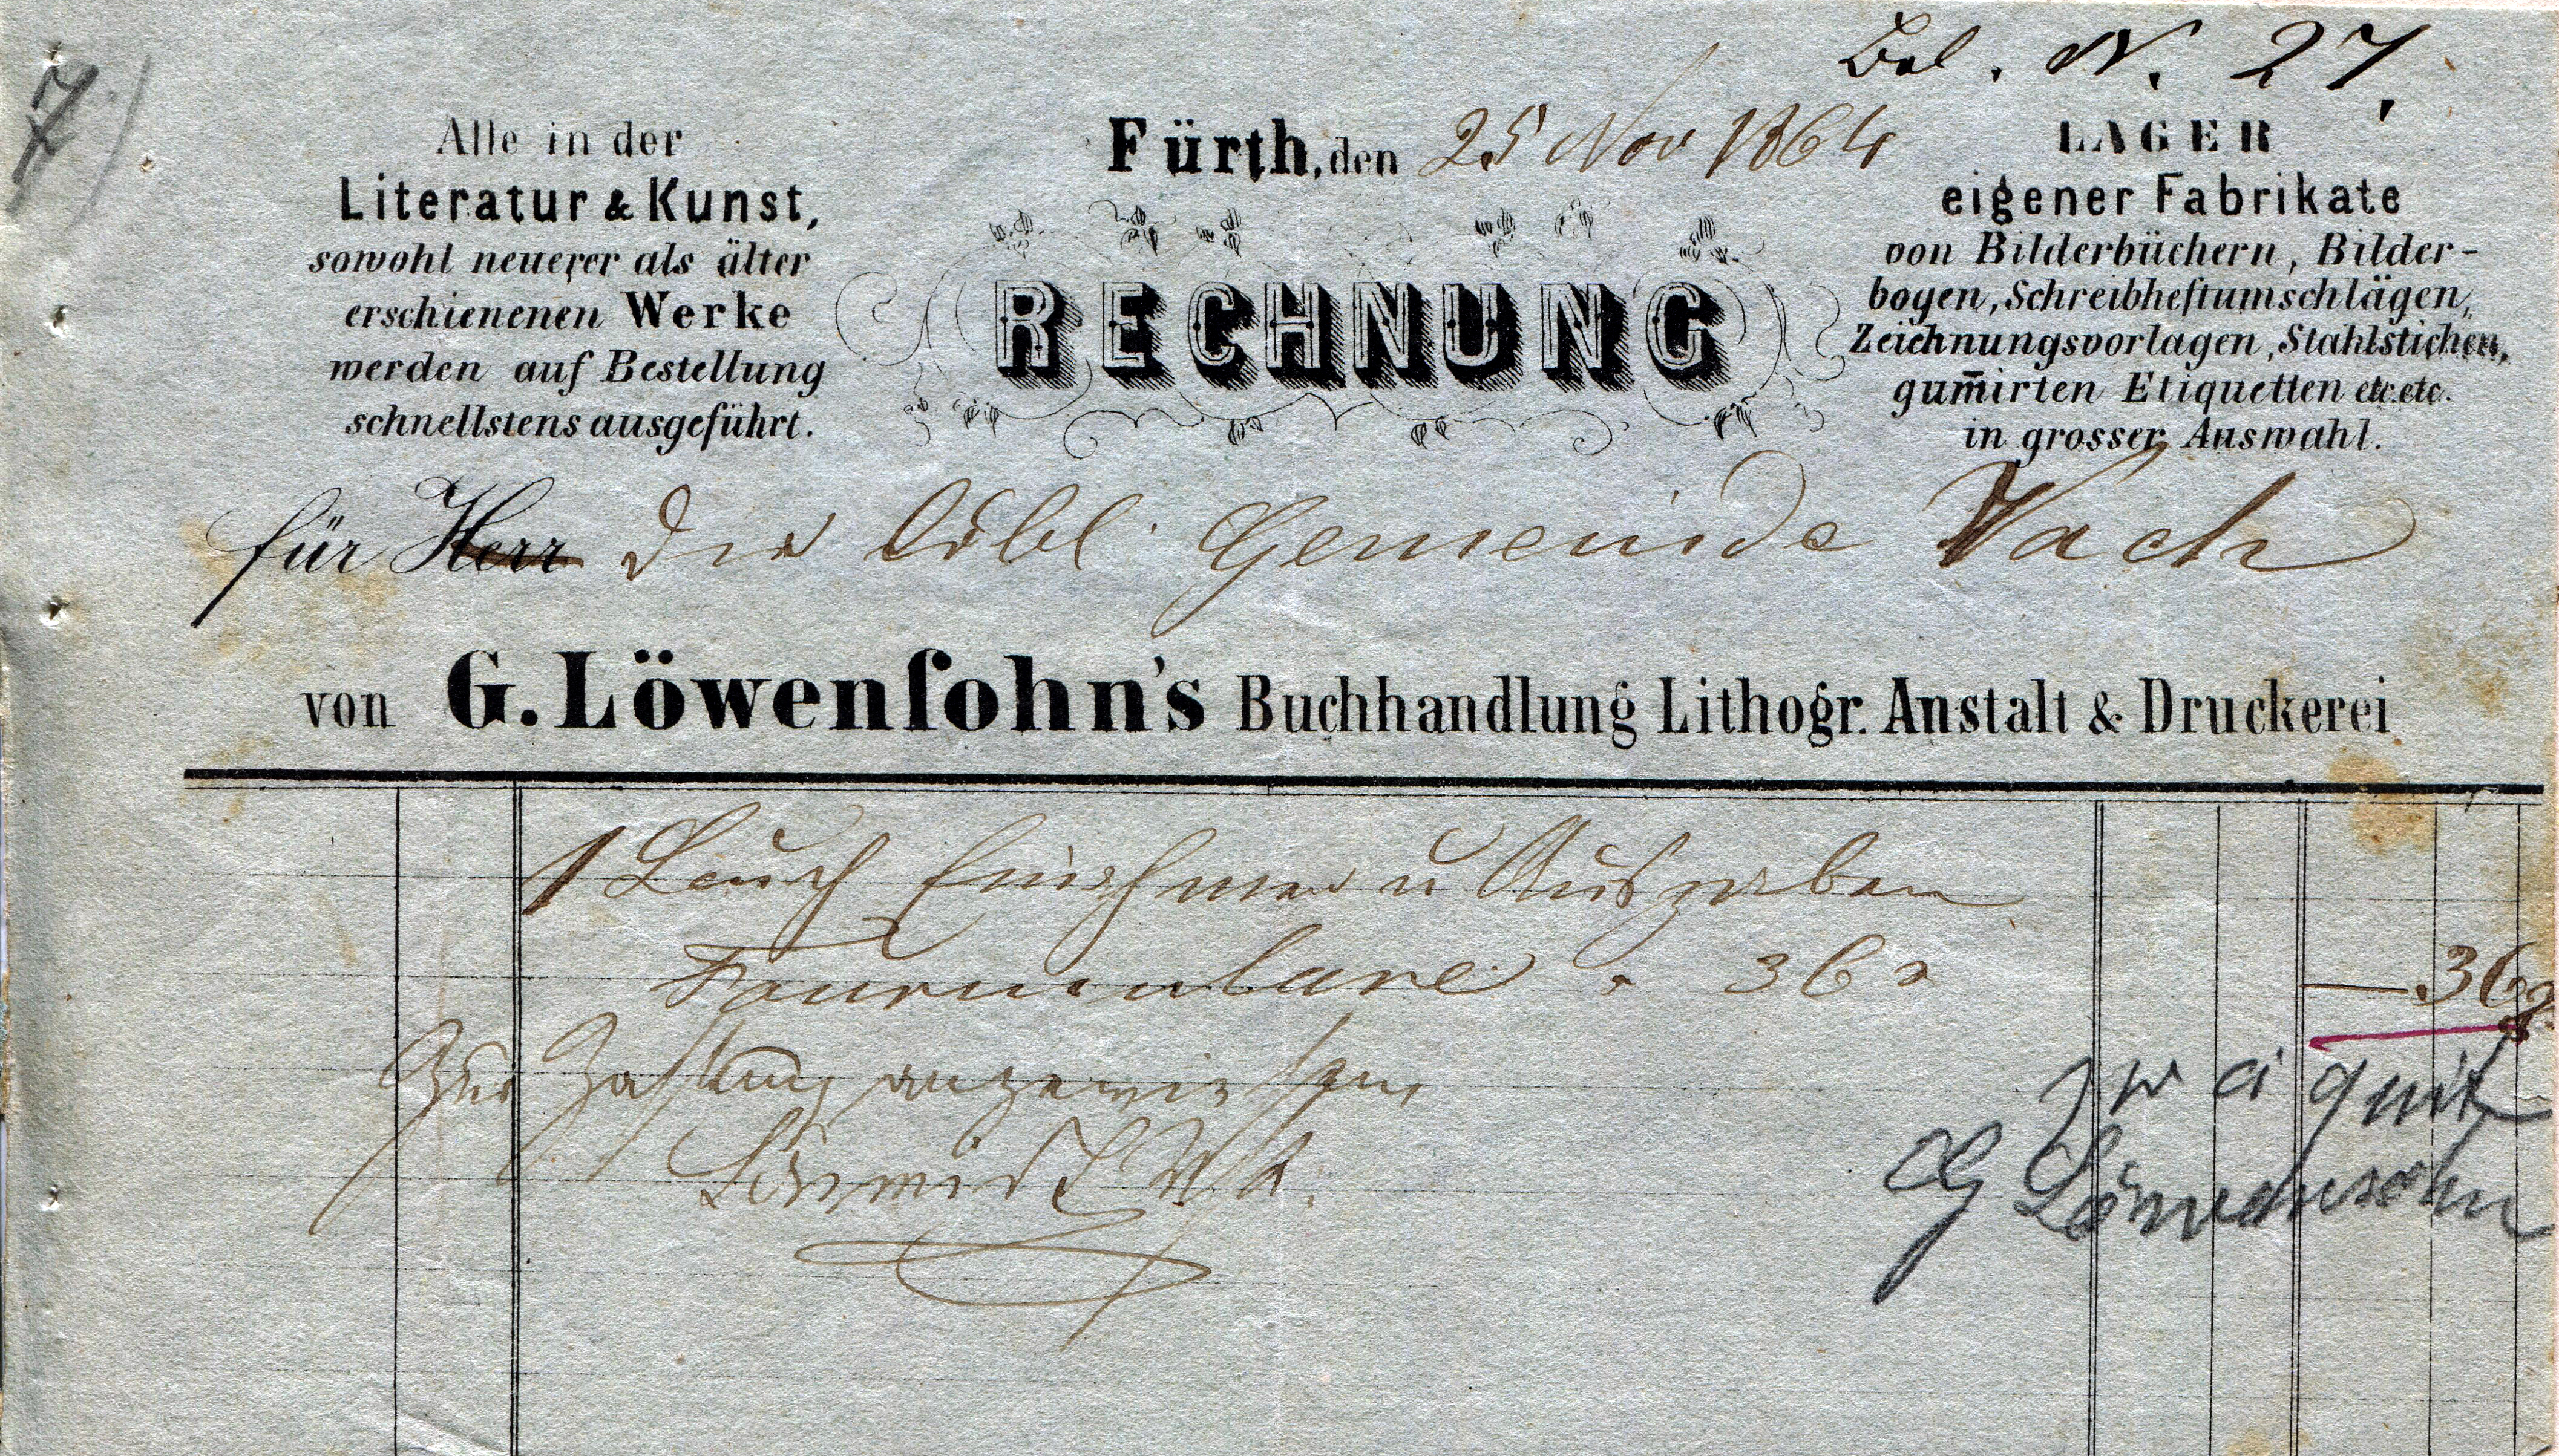 Bel. N. 27.
7)
Alle in der
Literatur & Kunst,
sowohl neuerer als älter
erschienenen Werke
werden auf Bestellung
schnellstens ausgeführt.
Fürth, den 25 Nov 1864
RECHNUNG
LAGER
eigener Fabrikate
von Bilderbüchern, Bilder-
bogen, Schreibheftumschlägen,
Zeichnungsvorlagen, Stahlstichen,
gum̄irten Etiquetten etc. etc.
in grosser Auswahl.
für Herr die löbl. Gemeinde Vach
von G. Löwenſohn's Buchhandlung Lithogr. Anstalt & Druckerei
1 Buch Einnahmen u Ausgaben
Formulare 36 x — 36 x
Zur Zahlung angewiesen
quit
G Löwensohn